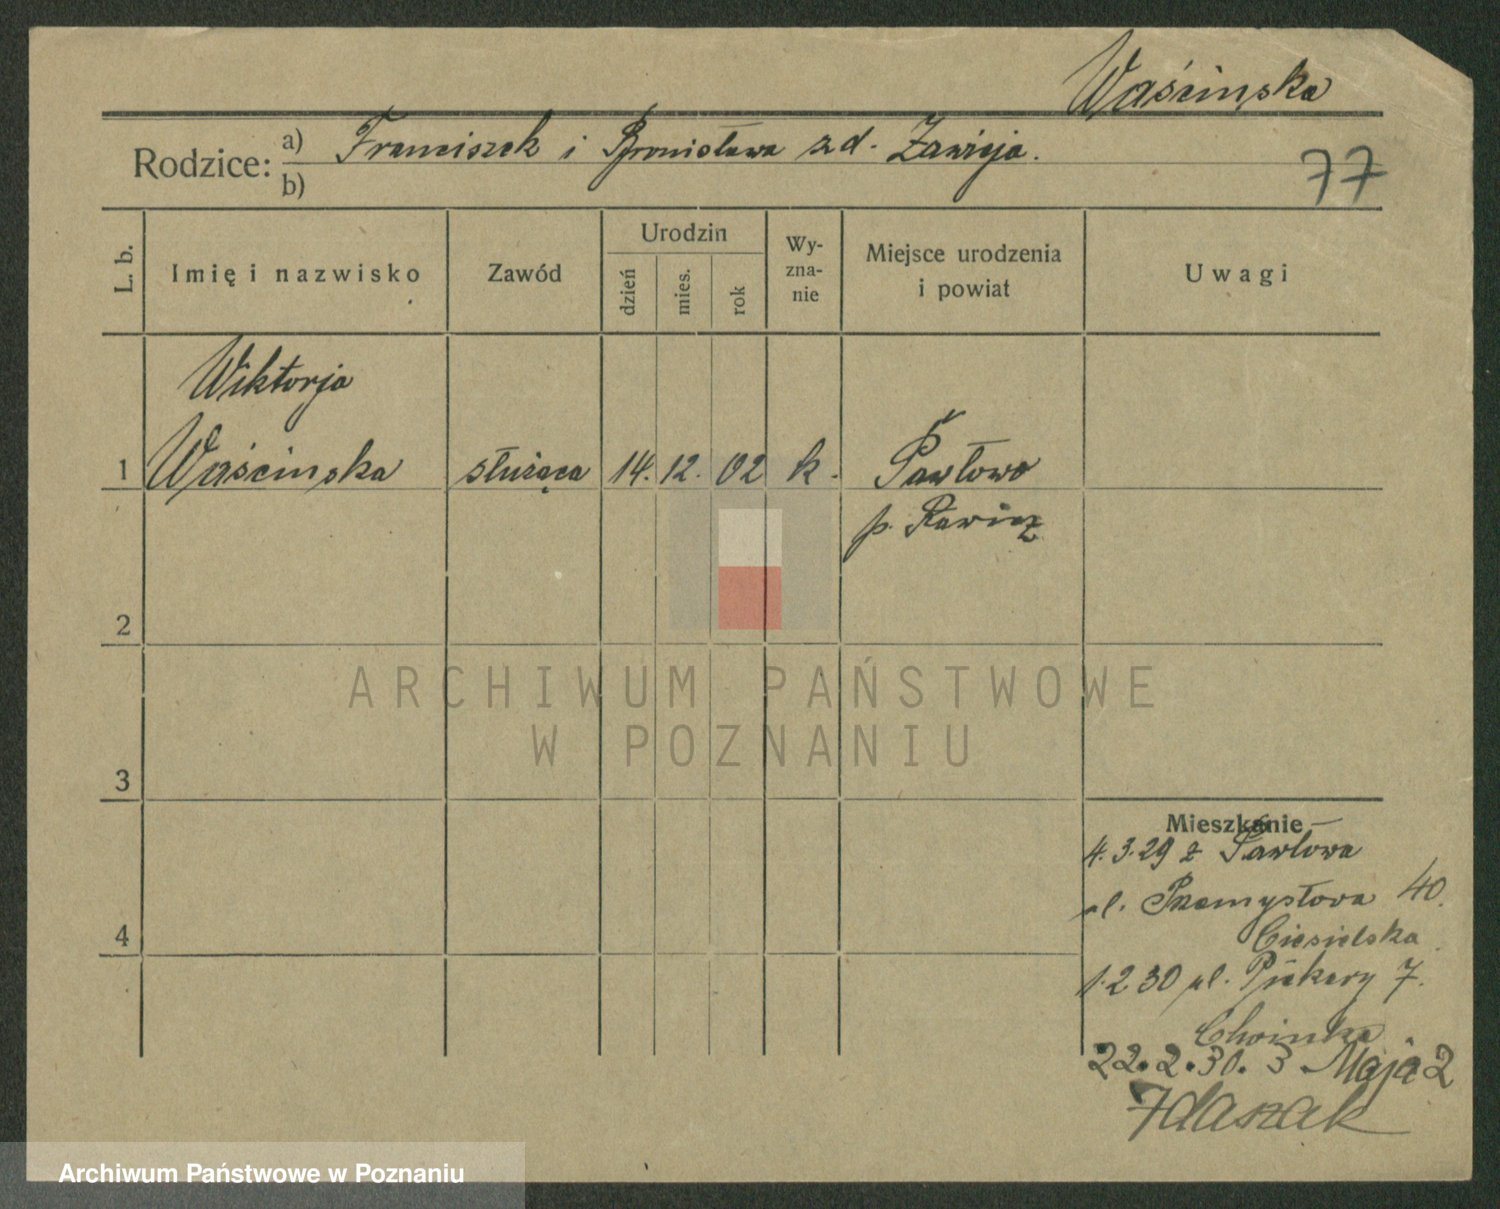 Waścinska
Rodzice: a) Franciszek i Bronisława zd. Zawieja.
b)
77
L. b.
Imię i nazwisko
Zawód
Urodzin
dzień
mies.
rok
Wy-
zna-
nie
Miejsce urodzenia
i powiat
Uwagi
Wiktorja
1 Waścinska służąca 14. 12. 02 k. Pawłowo
p. Rawicz
2
3
4
ARCHIWUM PAŃSTWOWE
W POZNANIU
Mieszkanie
4.3.29 z Pawłowa
ul. Przemysłowa 40.
Ciesielska
1.2 30 ul. Piekary 7.
Choinka
22.2.30. 3 Maja 2
Archiwum Państwowe w Poznaniu